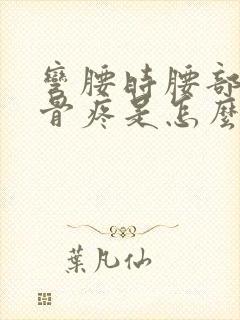 彎腰時腰部
骨疼是怎麼
葉凡仙